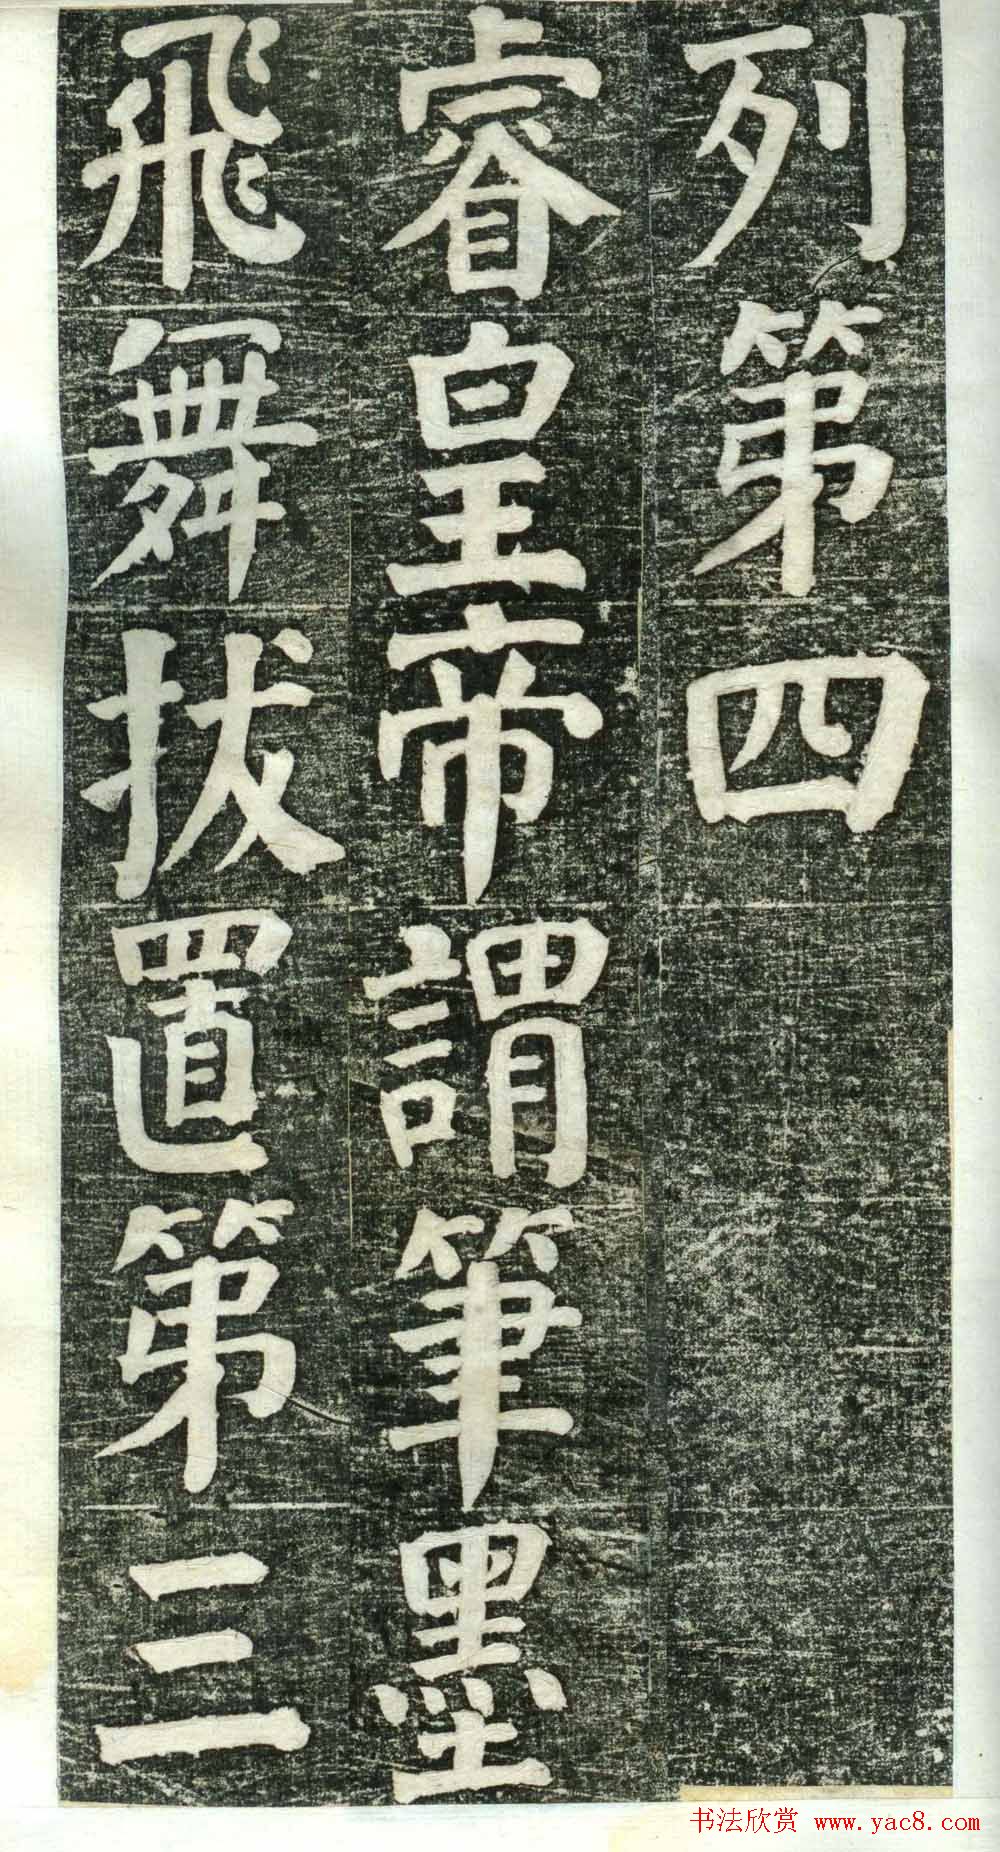 列第四
睿皇帝謂筆墨
飛舞拔置第三
书法欣赏 www.yac8.com